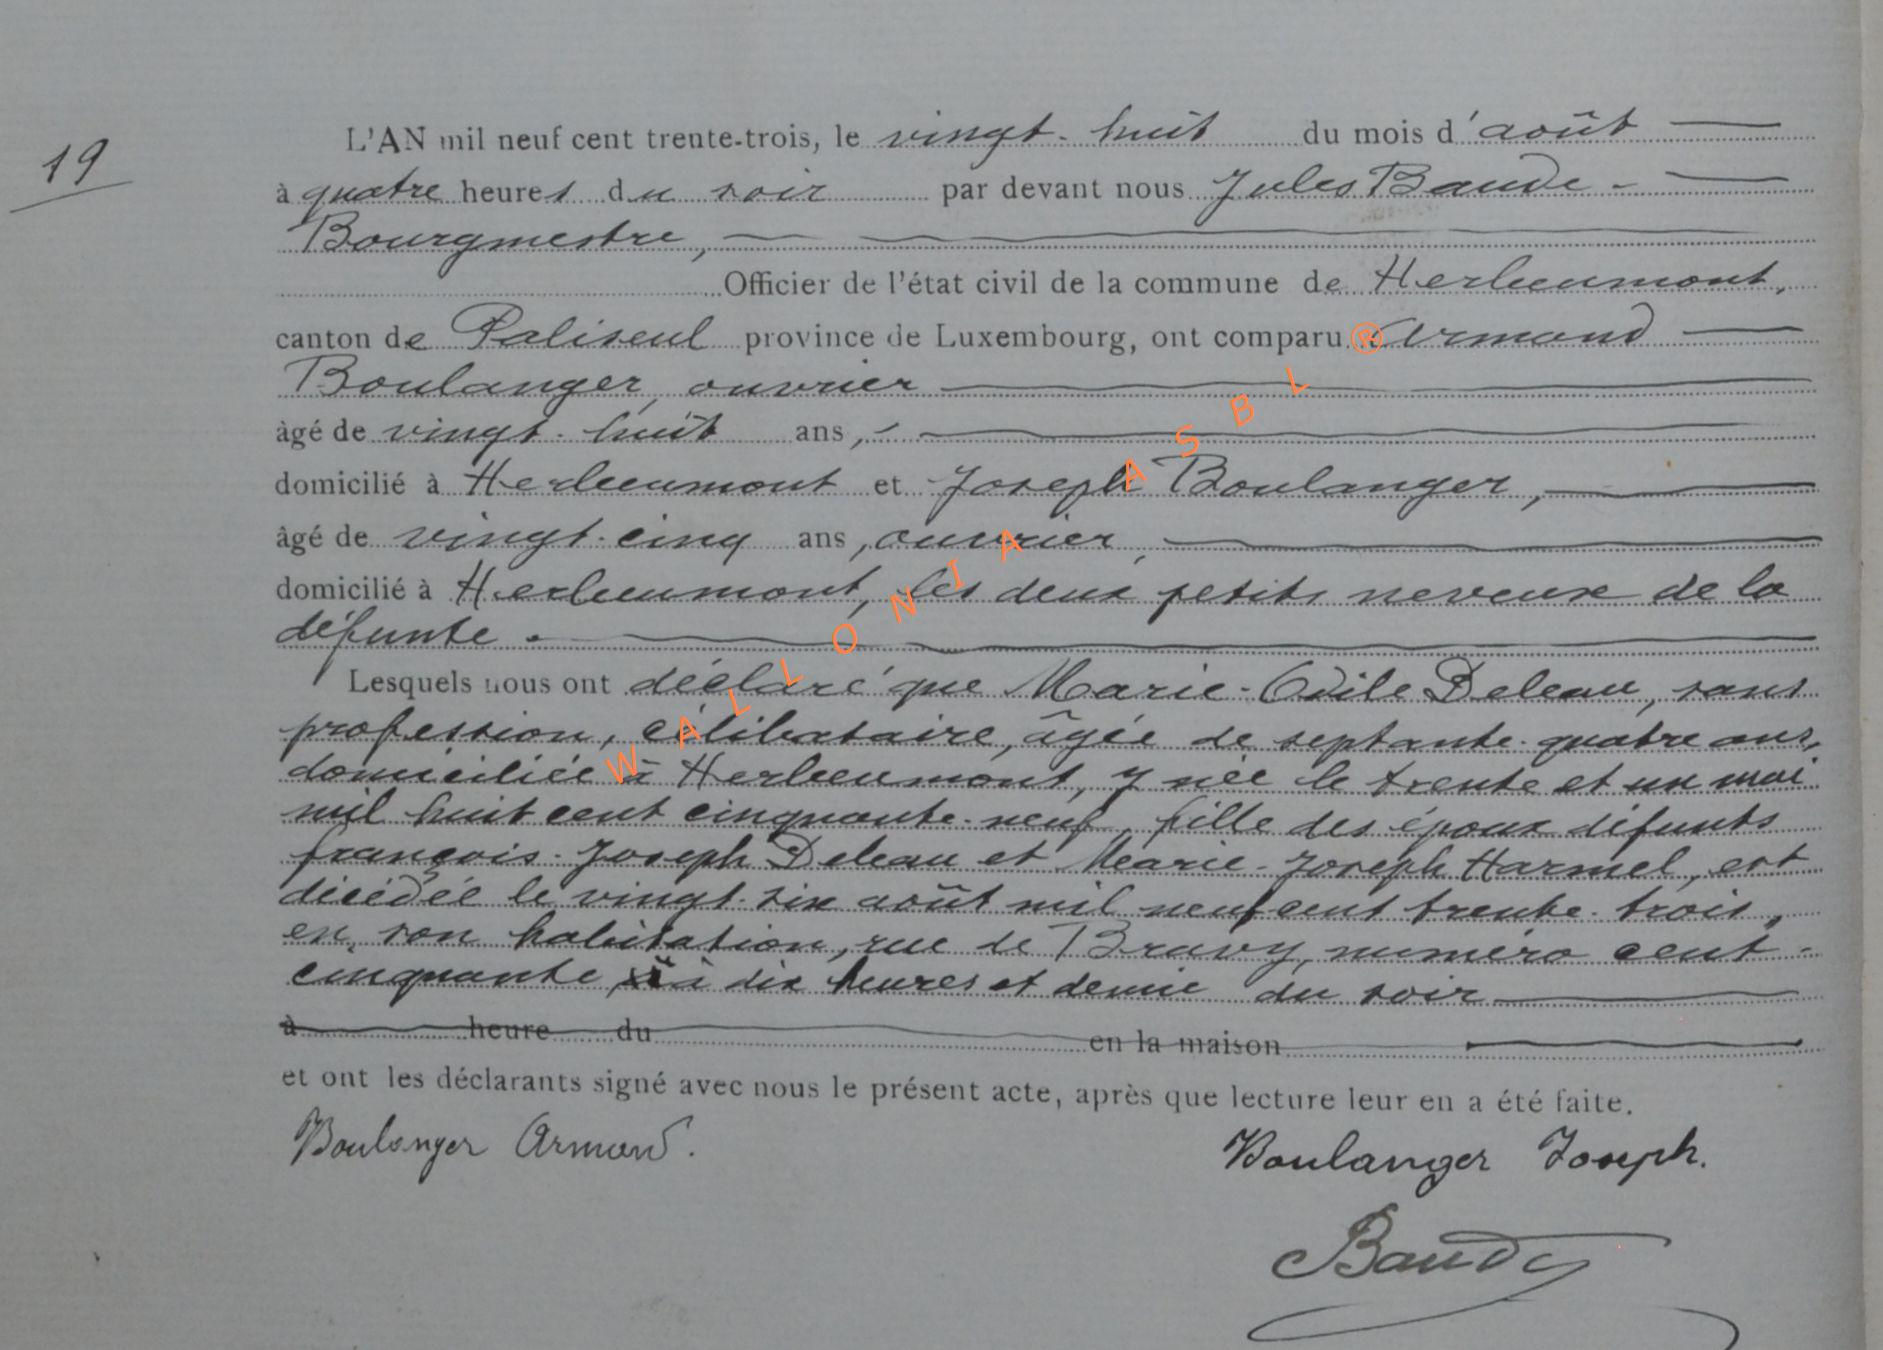 19
L'AN mil neuf cent trente-trois, le vingt-huit du mois d'août
à quatre heures du soir par devant nous Jules Baude
Bourgmestre,
Officier de l'état civil de la commune de Herbeumont,
canton de Paliseul province de Luxembourg, ont comparu Armand
Boulanger, ouvrier
âgé de vingt-huit ans,
domicilié à Herbeumont et Joseph Boulanger,
âgé de vingt-cinq ans, ouvrier,
domicilié à Herbeumont, les deux petits neveux de la
défunte.
Lesquels nous ont déclaré que Marie-Odile Deleau, sans
profession, célibataire, âgée de septante-quatre ans,
domiciliée à Herbeumont, y née le trente et un mai
mil huit cent cinquante-neuf, fille des époux défunts
françois-Joseph Deleau et Marie-Joseph Harmel, est
décédée le vingt-six août mil neuf cent trente-trois,
en son habitation, rue de Bravy, numéro cent-
cinquante, à dix heures et demie du soir
à heure du en la maison
et ont les déclarants signé avec nous le présent acte, après que lecture leur en a été faite.
Boulanger Armand. Boulanger Joseph.
Baude
WALLONIA ASBL ®